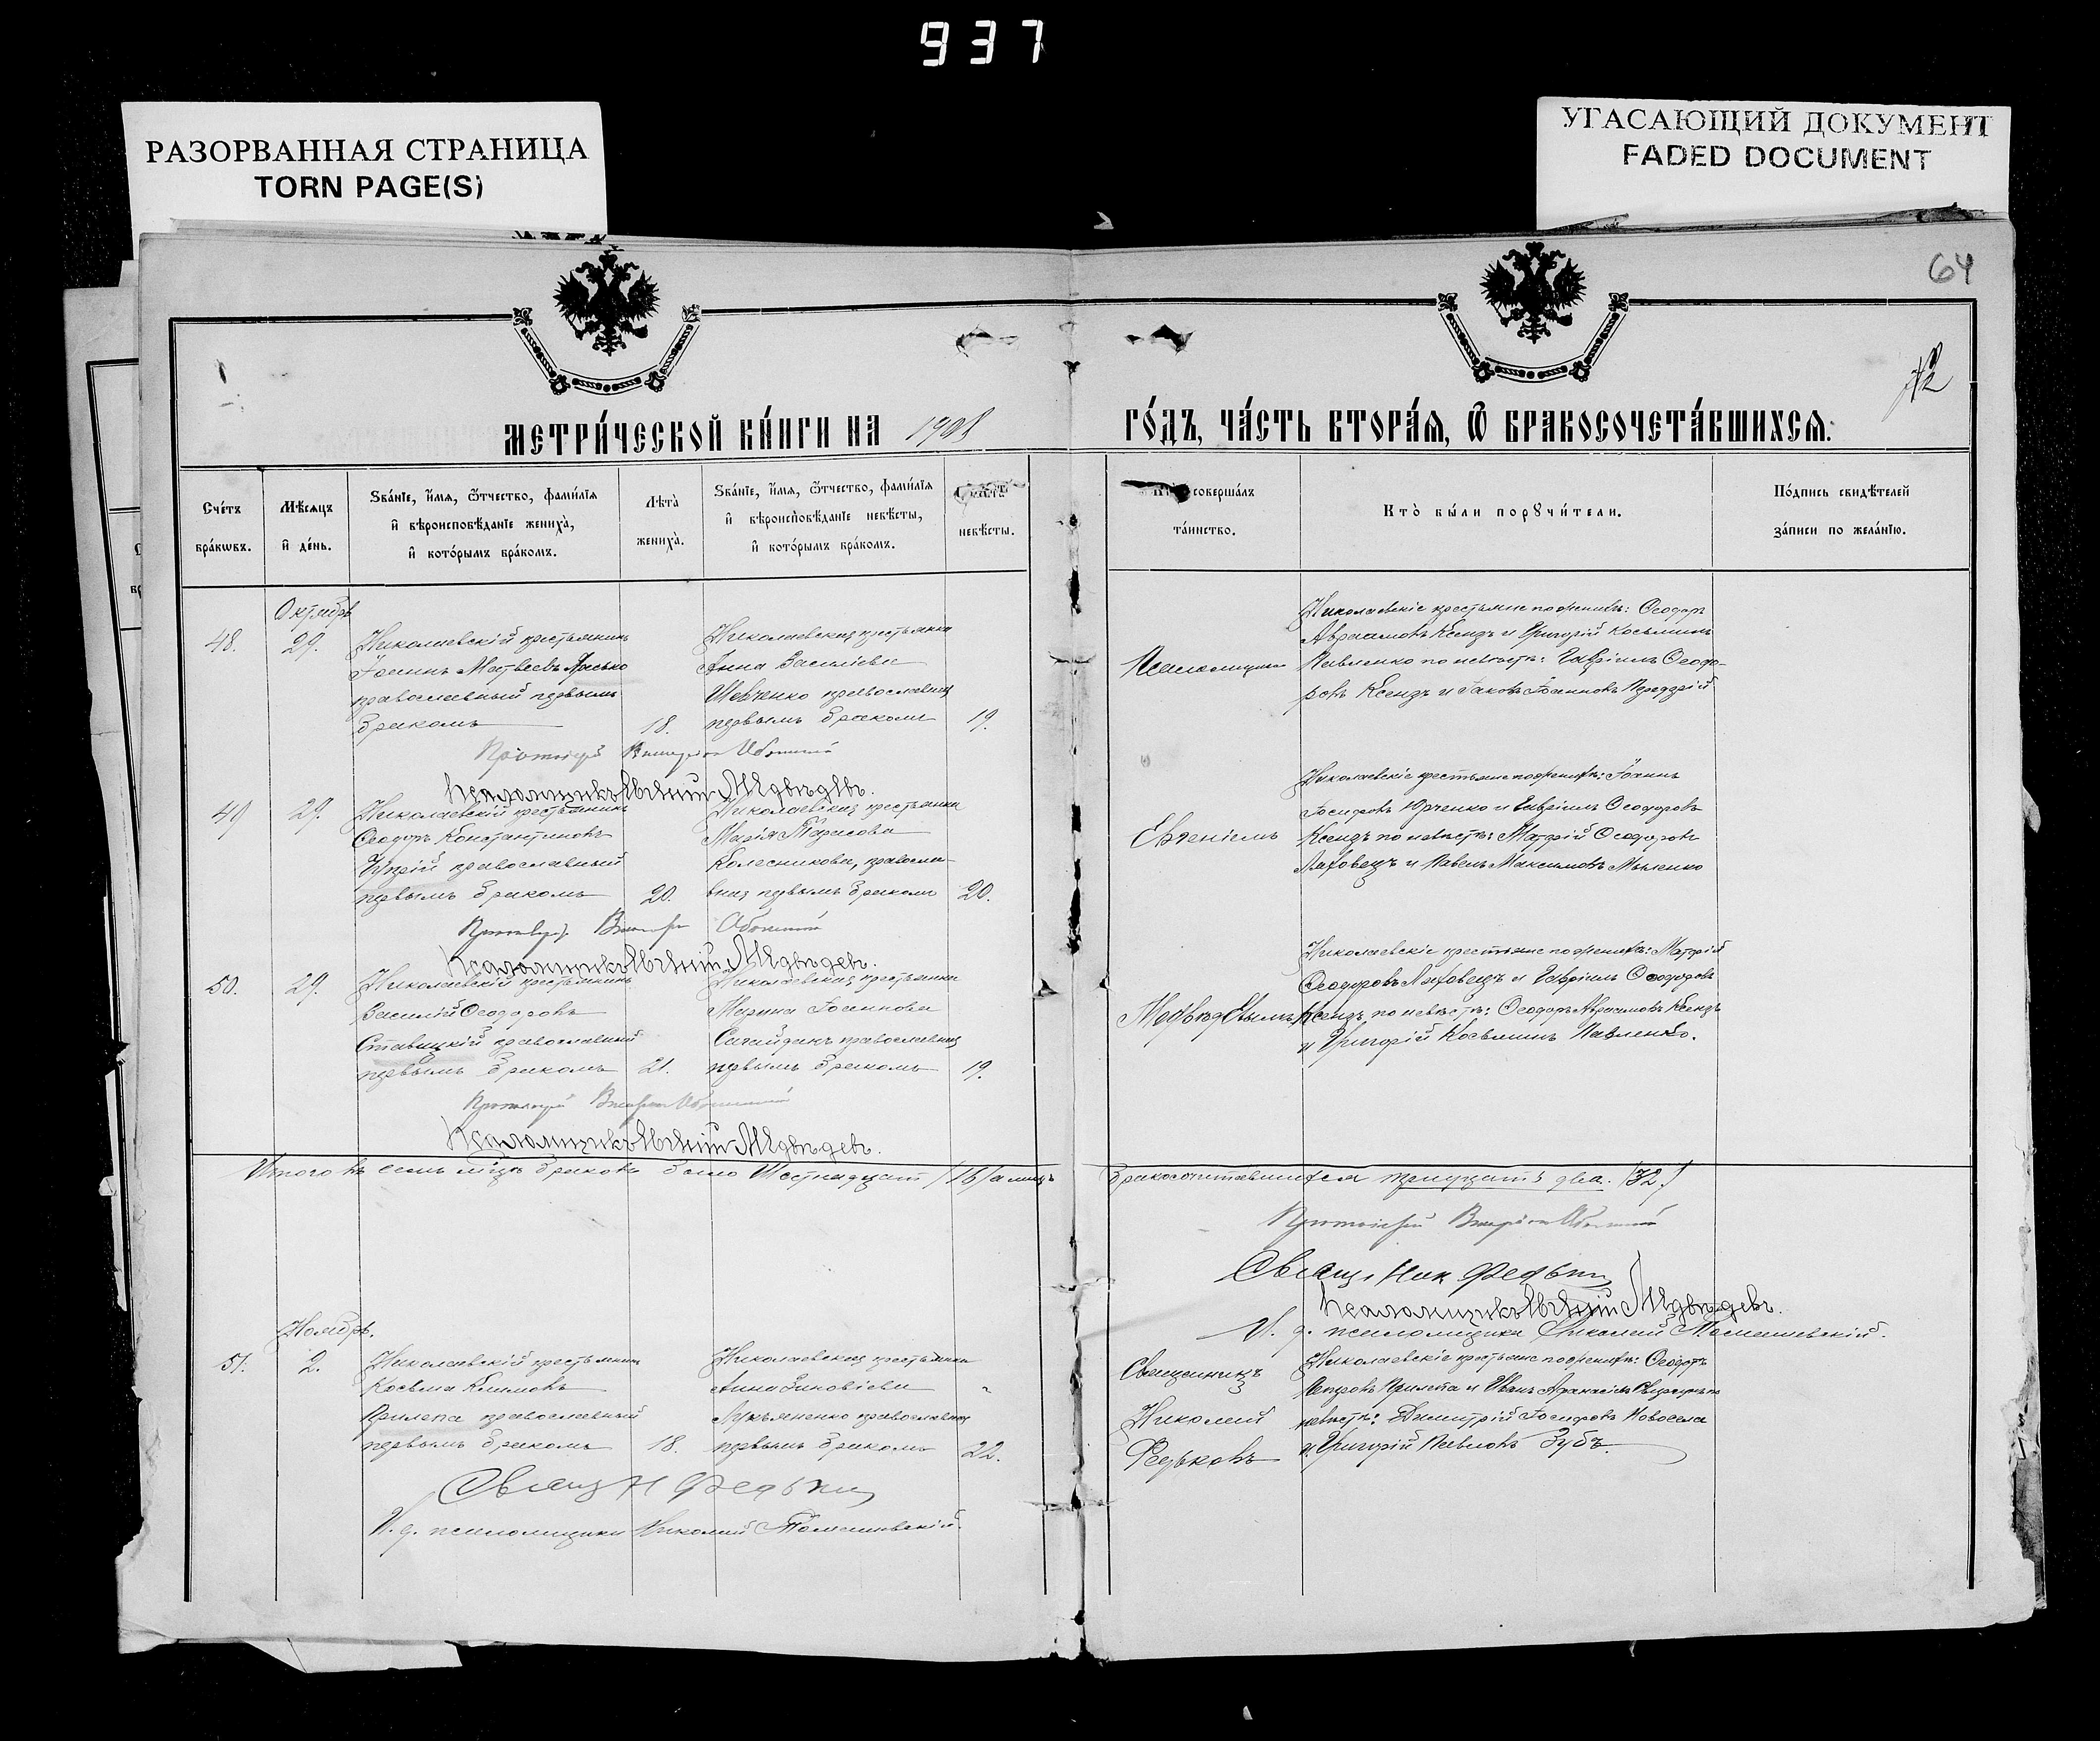 937
РАЗОРВАННАЯ СТРАНИЦА
TORN PAGE(S)
УГАСАЮЩИЙ ДОКУМЕНТ
FADED DOCUMENT
64
МЕТРИ́ЧЕСКОЙ КНИ́ГИ НА 1908
ГО́ДЪ, ЧА́СТЬ ВТОРА́Ѧ, Ѽ БРАКОСОЧЕТА́ВШИХСѦ.
Сче́тъ бра́кѡвъ.
Мѣ́сѧцъ и҆ де́нь.
Ѕва́нїе, и҆́мѧ, ѻ҆́тчество, фами́лїѧ
и҆ вѣроисповѣ́данїе жениха̀,
и҆ кото́рымъ бра́комъ.
Лѣ́та жениха̀.
Ѕва́нїе, и҆́мѧ, ѻ҆́тчество, фами́лїѧ
и҆ вѣроисповѣ́данїе невѣ́сты,
и҆ кото́рымъ бра́комъ.
невѣ́сты.
соверша́лъ та́инство.
Кто̀ бы́ли порꙋчи́тели.
По́дпись свидѣ́телей
за́писи по жела́нїю.
Октябрь
48.
29.
Николаевскій крестьянинъ
Іоаннъ Матвеевъ
православный первымъ
бракомъ
18.
Николаевская крестьянка
Анна Василіева
Шевченко православная
первымъ бракомъ
19.
Николаевскіе крестьяне по женихѣ: Ѳеодоръ
Авраамовъ Ксендъ и Григорій Косьминъ
Павленко по невѣстѣ: Гавріилъ Ѳеодо-
ровъ Ксендъ и Іаковъ Іоанновъ
Протоіерей
Псаломщикъ Евгеній Медвѣдевъ.
49
29.
Николаевскій крестьянинъ
Ѳеодоръ Константиновъ
православный
первымъ бракомъ
20.
Николаевская крестьянка
Марія Тарасова
Колесникова, правосла-
вная первымъ бракомъ
20.
Евгеніемъ
Николаевскіе крестьяне по женихѣ: Іоаннъ
Іосифовъ Юрченко и Гавріилъ Ѳеодоровъ
Ксендъ по невѣстѣ: Ѳеодоровъ
Ляховецъ и Павелъ Максимовъ
Протоіерей
Псаломщикъ Евгеній Медвѣдевъ.
50.
29.
Николаевскій крестьянинъ
Василій Ѳеодоровъ
Ставицкій православный
первымъ бракомъ
21.
Николаевская крестьянка
Марина Іоаннова
Сагайдакъ православная
первымъ бракомъ
19.
Медвѣдевымъ
Николаевскіе крестьяне по женихѣ:
Ѳеодоровъ Ляховецъ и Гавріилъ Ѳеодоровъ
Ксендъ, по невѣстѣ: Ѳеодоръ Авраамовъ Ксендъ
и Григорій Косьминъ Павленко.
Протоіерей
Псаломщикъ Евгеній Медвѣдевъ.
Итого въ семъ м-цѣ браковъ было Шестнадцат /16/ а лицъ
бракосочетавшихся тридцать два. (32.)
Протоіерей
Свящ. Ник Федьк
Псаломщикъ Евгеній Медвѣдевъ.
И. д. псаломщика Николай
Ноябрь.
51.
2.
Николаевскій крестьянин
Косьма Климовъ
Прилепа православный
первымъ бракомъ
18.
Николаевская крестьянка
Анна Зиновіева
Лукьяненко православная
первымъ бракомъ
22.
Священникъ
Николай
Федьковъ
Николаевскіе крестьяне по женихѣ: Ѳеодотъ
Петровъ Прилепа и Иванъ Аѳанасіевъ
невѣстѣ: Димитрій Іосифовъ Новосела
и Григорій Павловъ Зубъ.
Свящ Н Федьк
И. д. псаломщика Николай